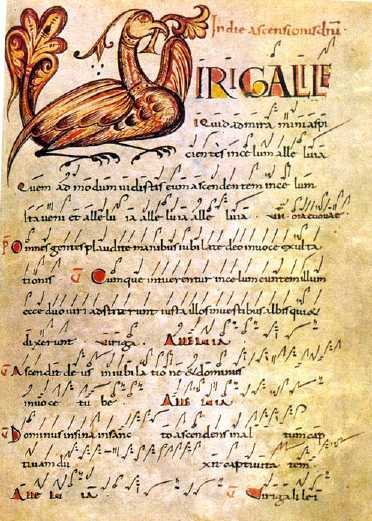 In die ascensionis
VIRI GALILE
i Quid admiramini aspi
cientes in celum alle luia
Quem ad modum vidistis eum ascendentem in celum
ita veni et alle lu ia alle luia alle luia
Omnes gentes plaudite manibus iubilate deo in voce exulta
tionis Cumque intuerentur in celum euntem illum
ecce duo viri astiterunt iuxta illos in vestibus albis qui &
dixerunt viri ga Alleluia
Ascendit deus in iubila tio ne & dominus
in voce tu be Alle luia
Dominus in sina in sanc to ascendens in al tum cap
tivam du xit captivita tem
Alle lu ia Viri galilei